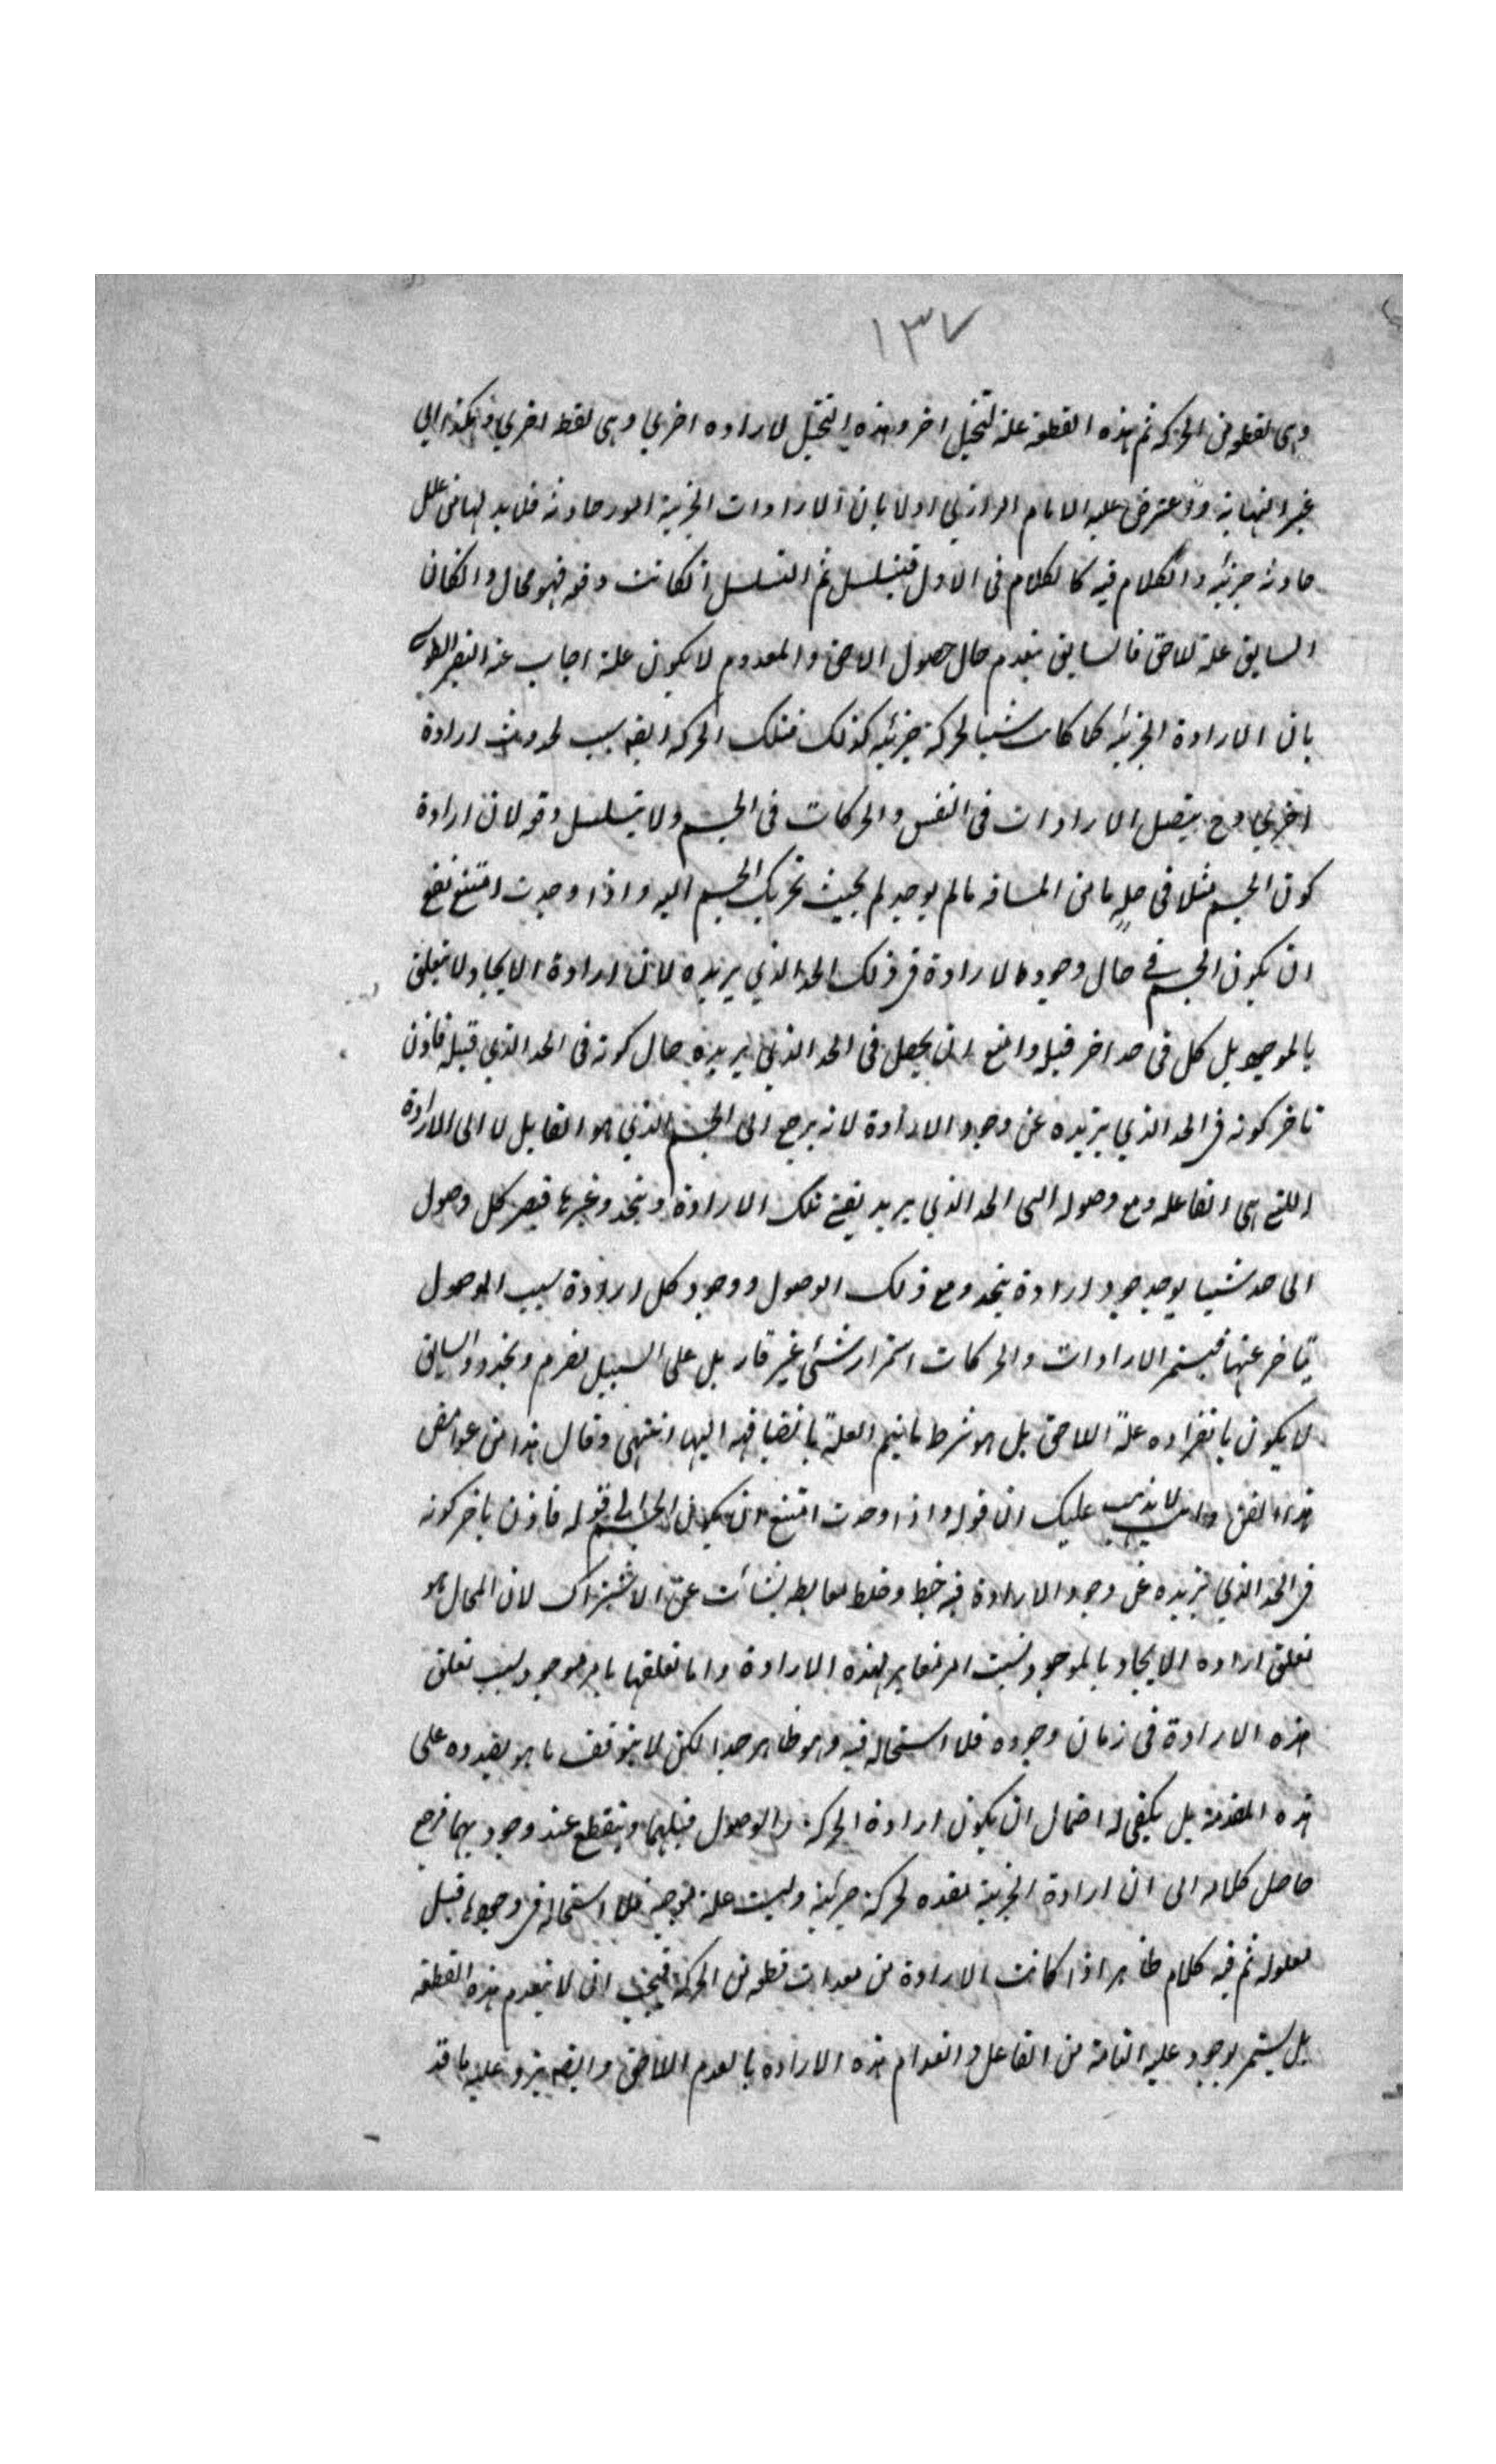 ١٣٧
وهى لقطعة من الحركة ثم هذه القطعة علة لتخيل اخر وهذه التخيل لارادة اخرى وهى لقطعة اخرى وهكذا الى
غير النهاية واعترض عليه الامام الرازى اولا بان الارادات الجزئية امور حادثة فلا بد لها من علل
حادثة جزئية والكلام فيه كالكلام فى الاول فيتسلسل ثم التسلسل انكانت دفعة فهو محال وانكان
السابق علة للاحق فالسابق ينعدم حال حصول الاحق والمعدوم لا يكون علة اجاب عنه النصير الطوسى
بان الارادة الجزئية كما كانت سببا لحركة جزئية كذلك فتلك الحركة ايضه سبب لحدوث ارادة
اخرى وح يتصل الارادات فى النفس والحركات فى الجسم ولا يتسلسل دفعة لان ارادة
كون الجسم مثلا فى حد ما من المسافة ما لم يوجد لم بحيث تحريك الجسم اليه واذا وجدت امتنع
ان يكون الجسم فى حال وجود الارادة فى ذلك الحد الذي يريده لان ارادة الايجاد لا تتعلق
بالموجود بل كل فى حد اخر قبله وامتنع ان يحصل فى الحد الذي يريده حال كونه فى الحد الذي قبله فاذن
تاخر كونه فى الحد الذي يريده عن وجود الارادة لانه يرجع الى الجسم الذي هو القابل لا الى الارادة
اللتى هى الفاعلة ومع وصوله الى الحد الذي يريد يفنى تلك الارادة ويتجدد غيرها فيصير كل وصول
الى حد سببا لوجود ارادة يتجدد مع ذلك الوصول ووجود كل ارادة سبب الوصول
يتاخر عنها فيستمر الارادات والحركات استمرار شئ غير قار بل على السبيل تصرم وتجدد والسابق
لا يكون بانفراده علة اللاحق بل هو شرط ما يتم العلة بانضيافه اليها انتهى وقال هذا من غوامض
هذا الفن وانت لا يذهب عليك ان قوله واذا وجدت امتنع ان يكون الجسم الى قوله فاذن تاخر كونه
فى الحد الذي يريده عن وجود الارادة فيه خبط وخلط مغالطة نشأت عن الاشتراك لان المحال هو
تعلق ارادة الايجاد بالموجود بسبب امر مغاير لهذه الارادة واما تعلقها بامر موجود بسبب تعلق
هذه الارادة فى زمان وجوده فلا استحالة فيه وهو ظاهر جدا لكن لا يتوقف ما هو بصدده على
هذه المقدمة بل يكفى له احتمال ان يكون ارادة الحركة والوصول قبلهما وينقطع عند وجودهما فرجع
حاصل كلامه الى ان ارادة الجزئية معده لحركة جزئية وليست علة موجبة فلا استحالة فى وجودها قبل
معلوله ثم فيه كلام ظاهر اذا كانت الارادة من معدات قطعة من الحركة فيجب ان لا ينعدم هذه القطعة
بل يستمر لوجود علية التامة من الفاعل وانعدام هذه الارادة بالعدم اللاحق وايضه يرد عليه ما قد